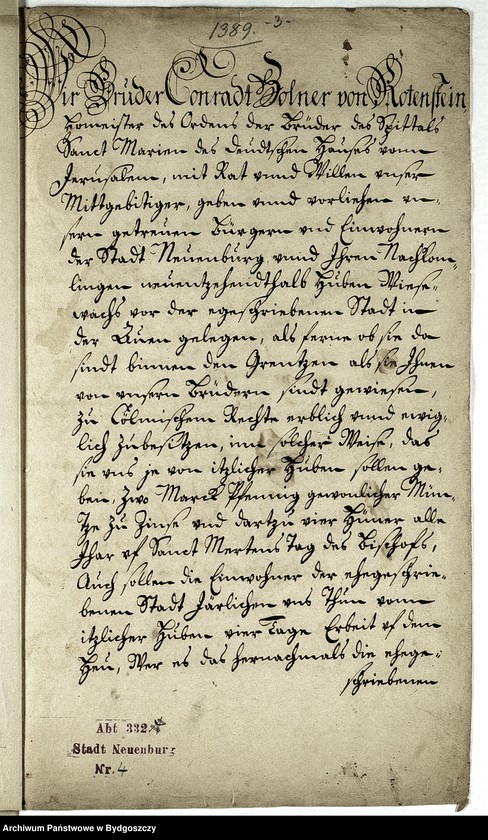 1389. -3-
Wir Bruder Conradt Zolner von Rotenstein,
Homeister des Ordens der Brüder des Spittals
Sanct Marien des Deudtschen Hauses vom
Jerusalem, mit Rat vnnd Willen vnser
Mittgebitiger, geben vnnd vorliehen vn-
sern getreuen Bürgern vnd Einwohnern
der Stadt Neuenburg vnnd Ihren Nachkom-
lingen neuentzehendthalb Huben Wiese-
wachs vor der egeschriebenen Stadt in
der Auen gelegen, als ferne ob sie da
sindt binnen den Grentzen als sie Ihnen
von vnsern Brüdern sindt gewiesen,
zu Cölmischem Rechte erblich vnnd ewig-
lich zubesitzen, inn solcher Weise, das
sie vns je von itzlicher Huben sollen ge-
ben, zwo Marck Pfennig gewonlicher Mün-
tze zu Zinse vnd dartzu vier Hüner alle
Jhar vf Sanct Mertens Tag des Bischofs,
Auch sollen die Einwohner der ehegeschrie-
benen Stadt Järlichen vns Thun vonn
itzlicher Huben vier Tage Erbeit vf dem
Heu, Wer es das hernachmals die ehege-
schriebenen
Abt 332
Stadt Neuenburg
Nr. 4
Archiwum Państwowe w Bydgoszczy